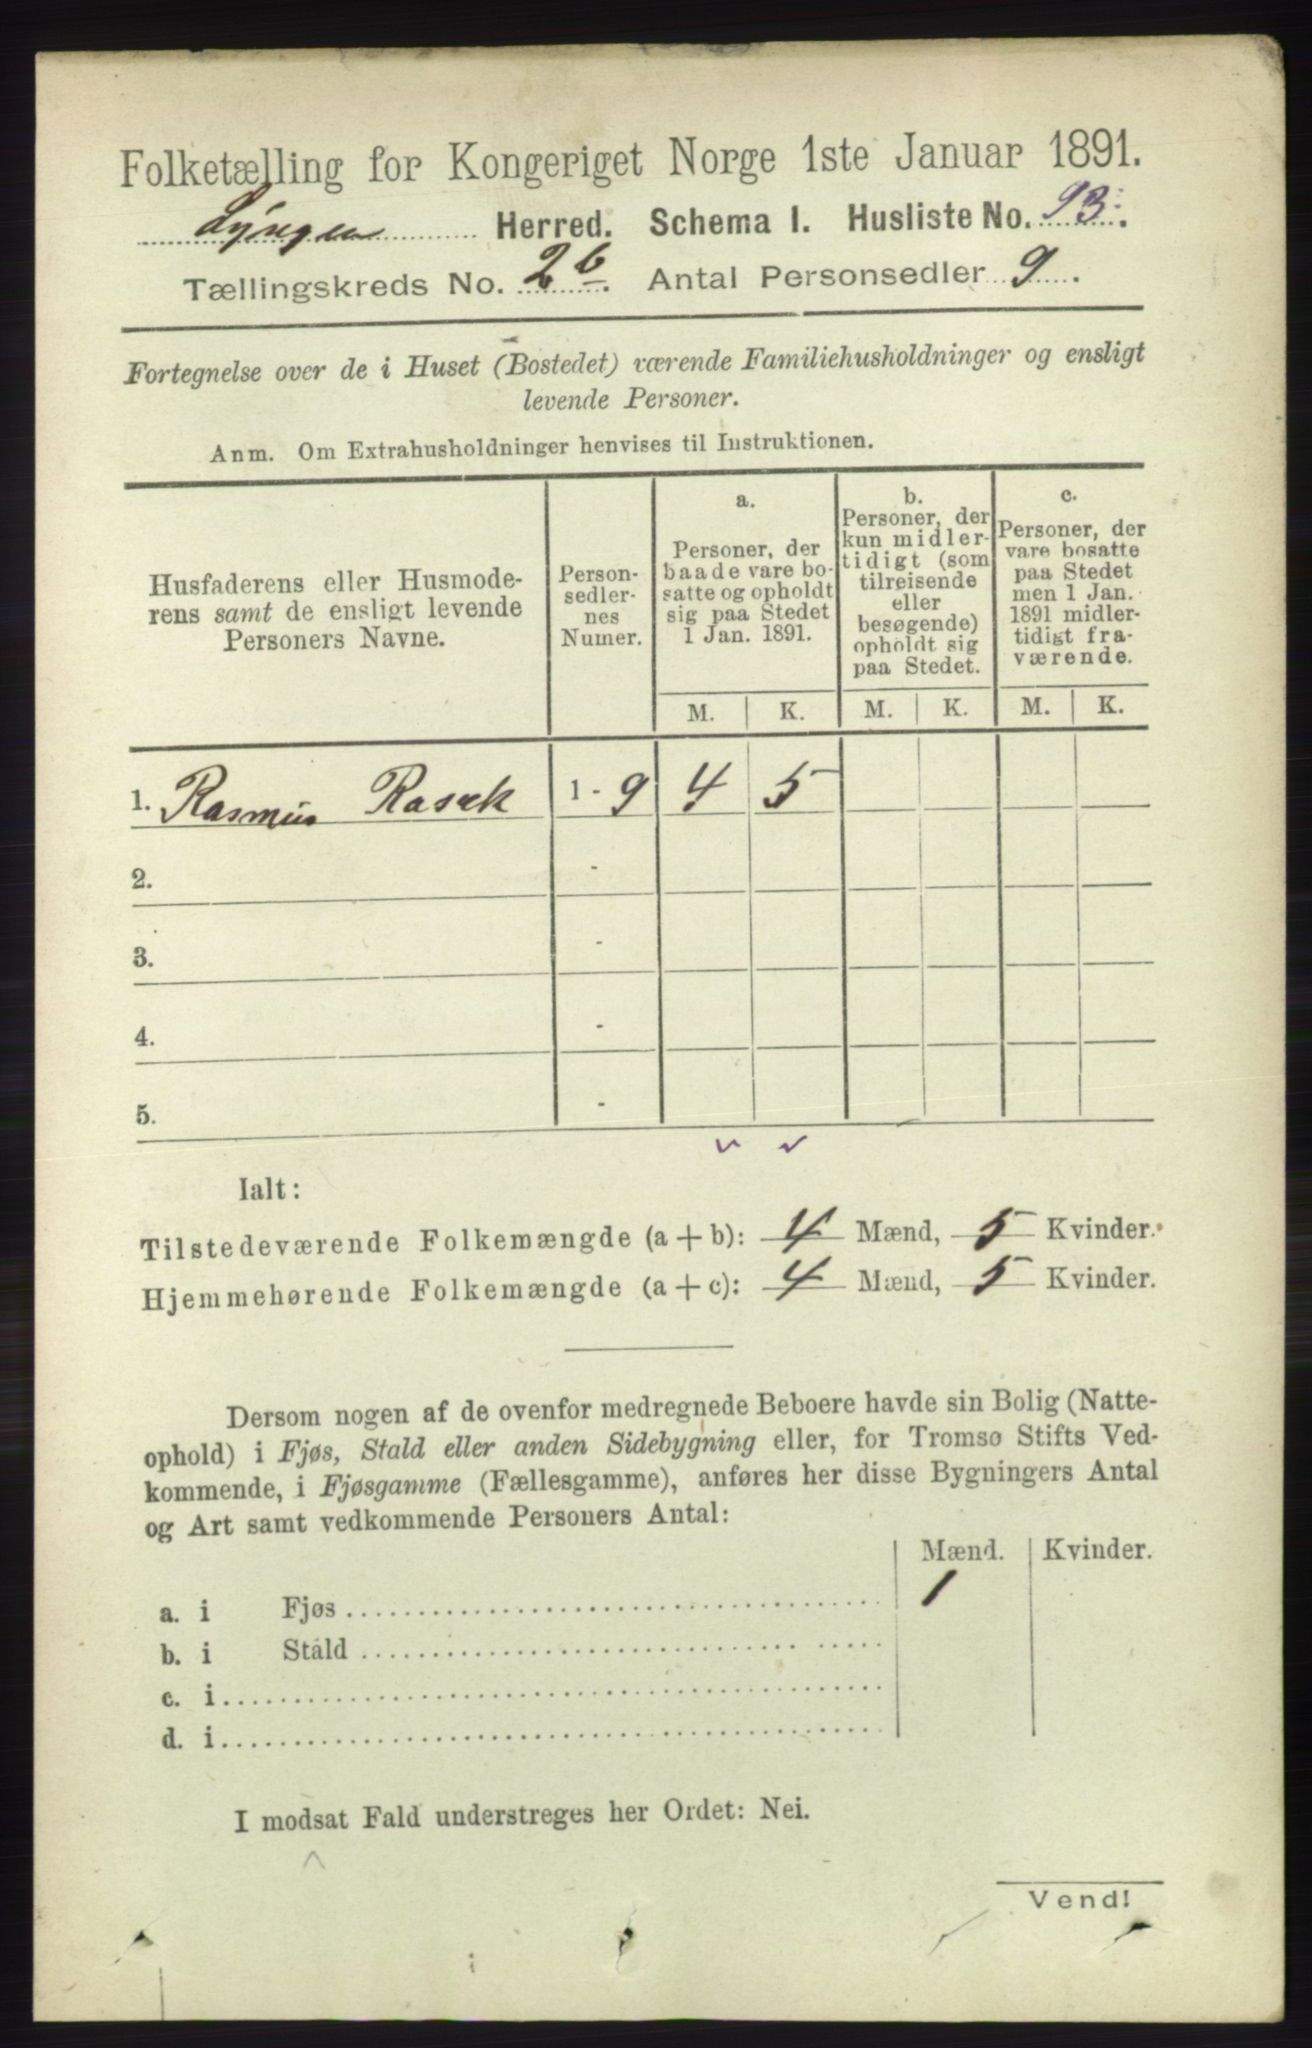 Folketælling for Kongeriget Norge 1ste Januar 1891.
Lyngen Herred. Schema I. Husliste No. 93.
Tællingskreds No. 2b. Antal Personsedler 9.
Fortegnelse over de i Huset (Bostedet) værende Familiehusholdninger og ensligt
levende Personer.
Anm. Om Extrahusholdninger henvises til Instruktionen.
Husfaderens eller Husmode-
rens samt de ensligt levende
Personers Navne.
Person-
sedler-
nes
Numer.
a.
Personer, der
baade vare bo-
satte og opholdt
sig paa Stedet
1 Jan. 1891.
b.
Personer, der
kun midler-
tidigt (som
tilreisende
eller
besøgende)
opholdt sig
paa Stedet.
c.
Personer, der
vare bosatte
paa Stedet
men 1 Jan.
1891 midler-
tidigt fra-
værende.
M. K. M. K. M. K.
1. Rasmus 1 - 9 4 5
2. -
3. -
4. -
5. -
Ialt:
Tilstedeværende Folkemængde (a + b): 4 Mænd, 5 Kvinder.
Hjemmehørende Folkemængde (a + c): 4 Mænd, 5 Kvinder.
Dersom nogen af de ovenfor medregnede Beboere havde sin Bolig (Natte-
ophold) i Fjøs, Stald eller anden Sidebygning eller, for Tromsø Stifts Ved-
kommende, i Fjøsgamme (Fællesgamme), anføres her disse Bygningers Antal
og Art samt vedkommende Personers Antal:
Mænd. Kvinder.
a. i Fjøs 1
b. i Stald
c. i
d. i
I modsat Fald understreges her Ordet: Nei.
Vend!